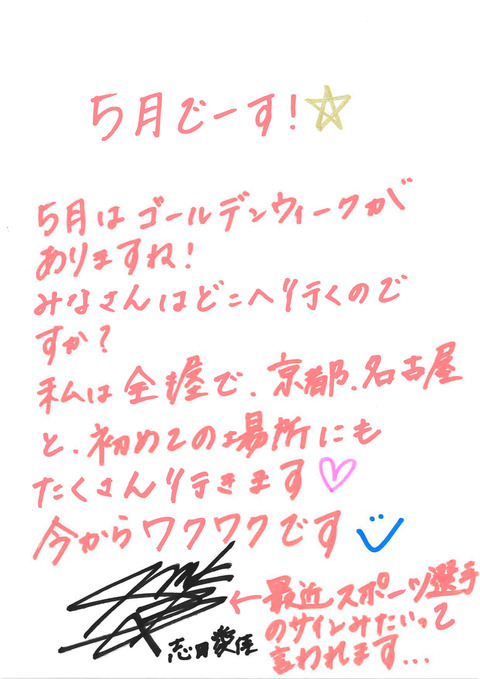 5月でーす!☆
5月はゴールデンウィークが
ありますね!
みなさんはどこへ行くので
すか?
私は全握で、京都、名古屋
と、初めての場所にも
たくさん行きます♡
今からワクワクです
志田愛佳
←最近スポーツ選手
のサインみたいって
言われます...